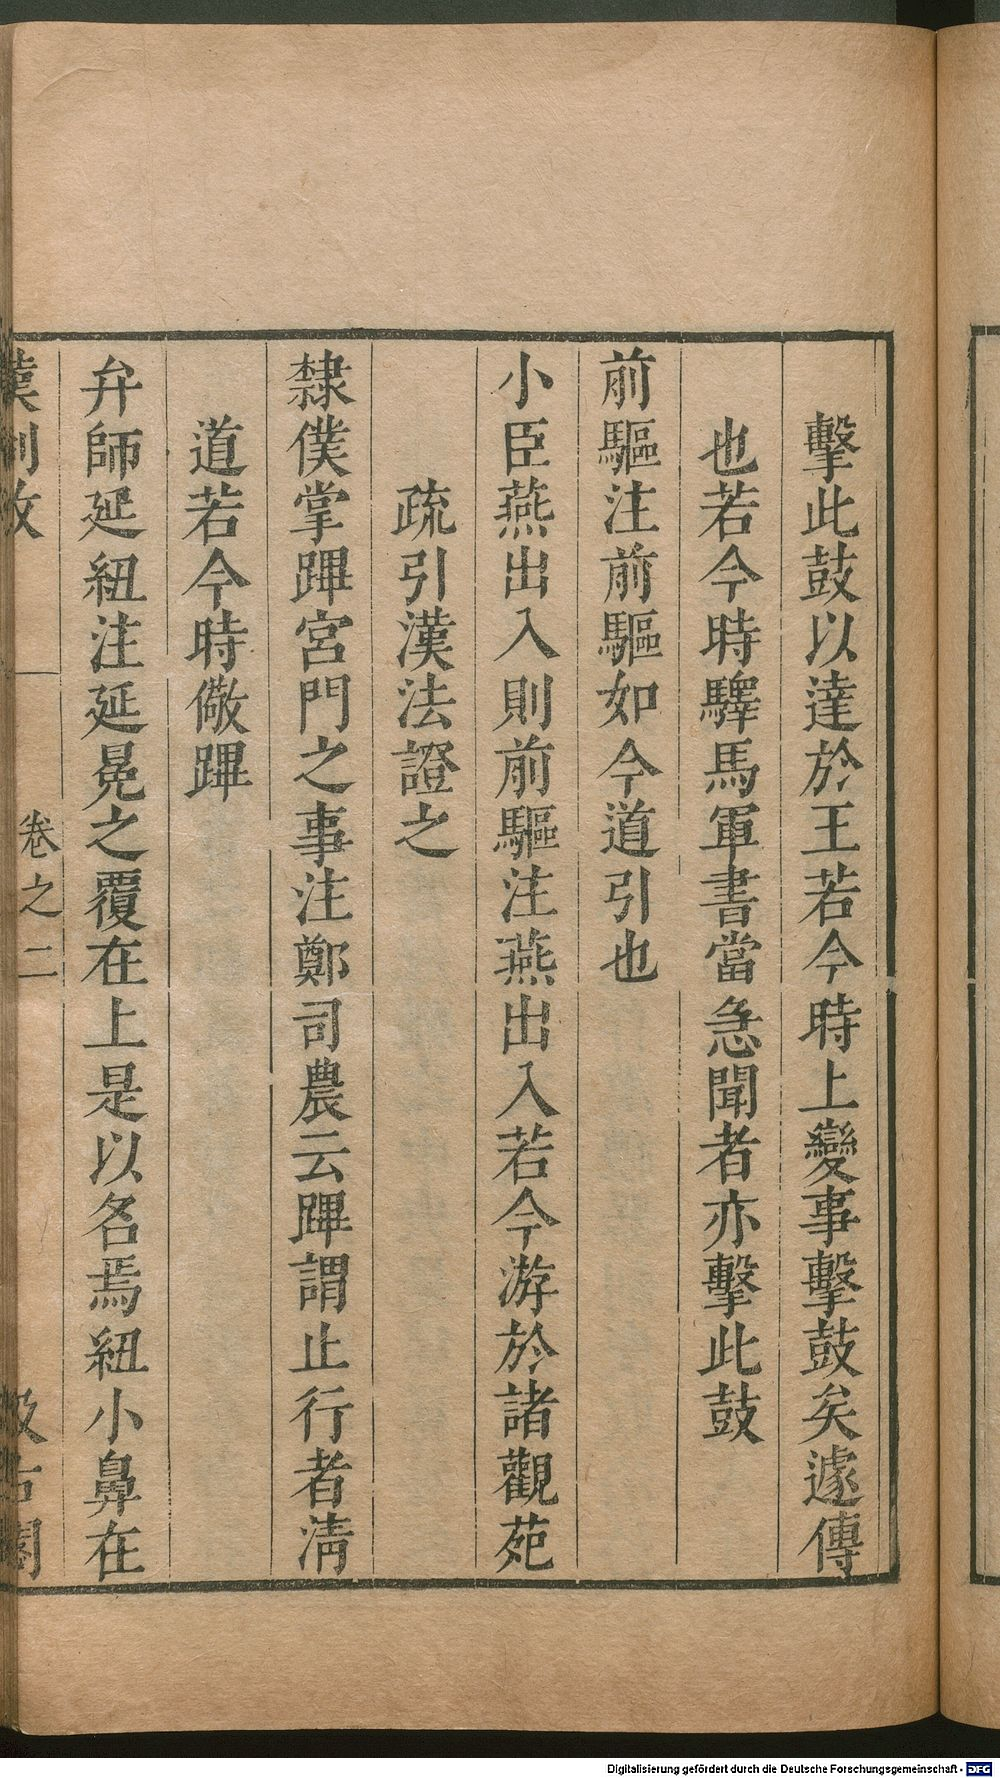 擊此鼓以達於王若今時上變事擊鼓矣遽傳
也若今時驛馬軍書當急聞者亦擊此鼓
前驅注前驅如今道引也
小臣燕出入則前驅注燕出入若今游於諸觀苑
疏引漢法證之
隸僕掌蹕宮門之事注鄭司農云蹕謂止行者清
道若今時儆蹕
弁師延紐注延冕之覆在上是以名焉紐小鼻在
漢制攷 卷之二 汲古閣
Digitalisierung gefördert durch die Deutsche Forschungsgemeinschaft - DFG